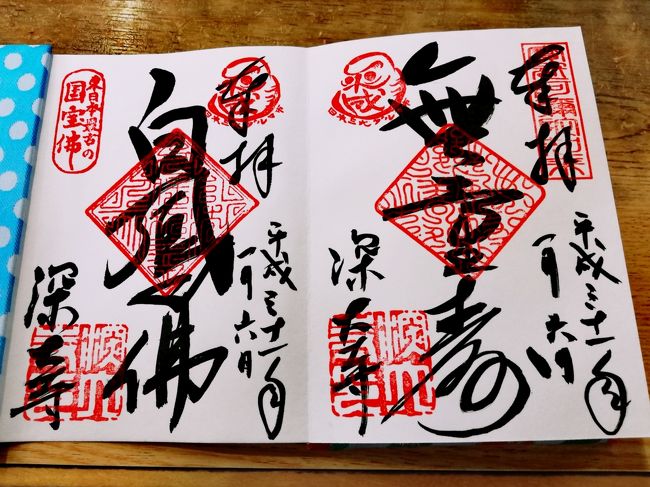 奉拝
無量寿
平成三十一年
一月六日
深大寺
東日本最古の
国宝佛
奉拝
白鳳佛
平成三十一年
一月六日
深大寺